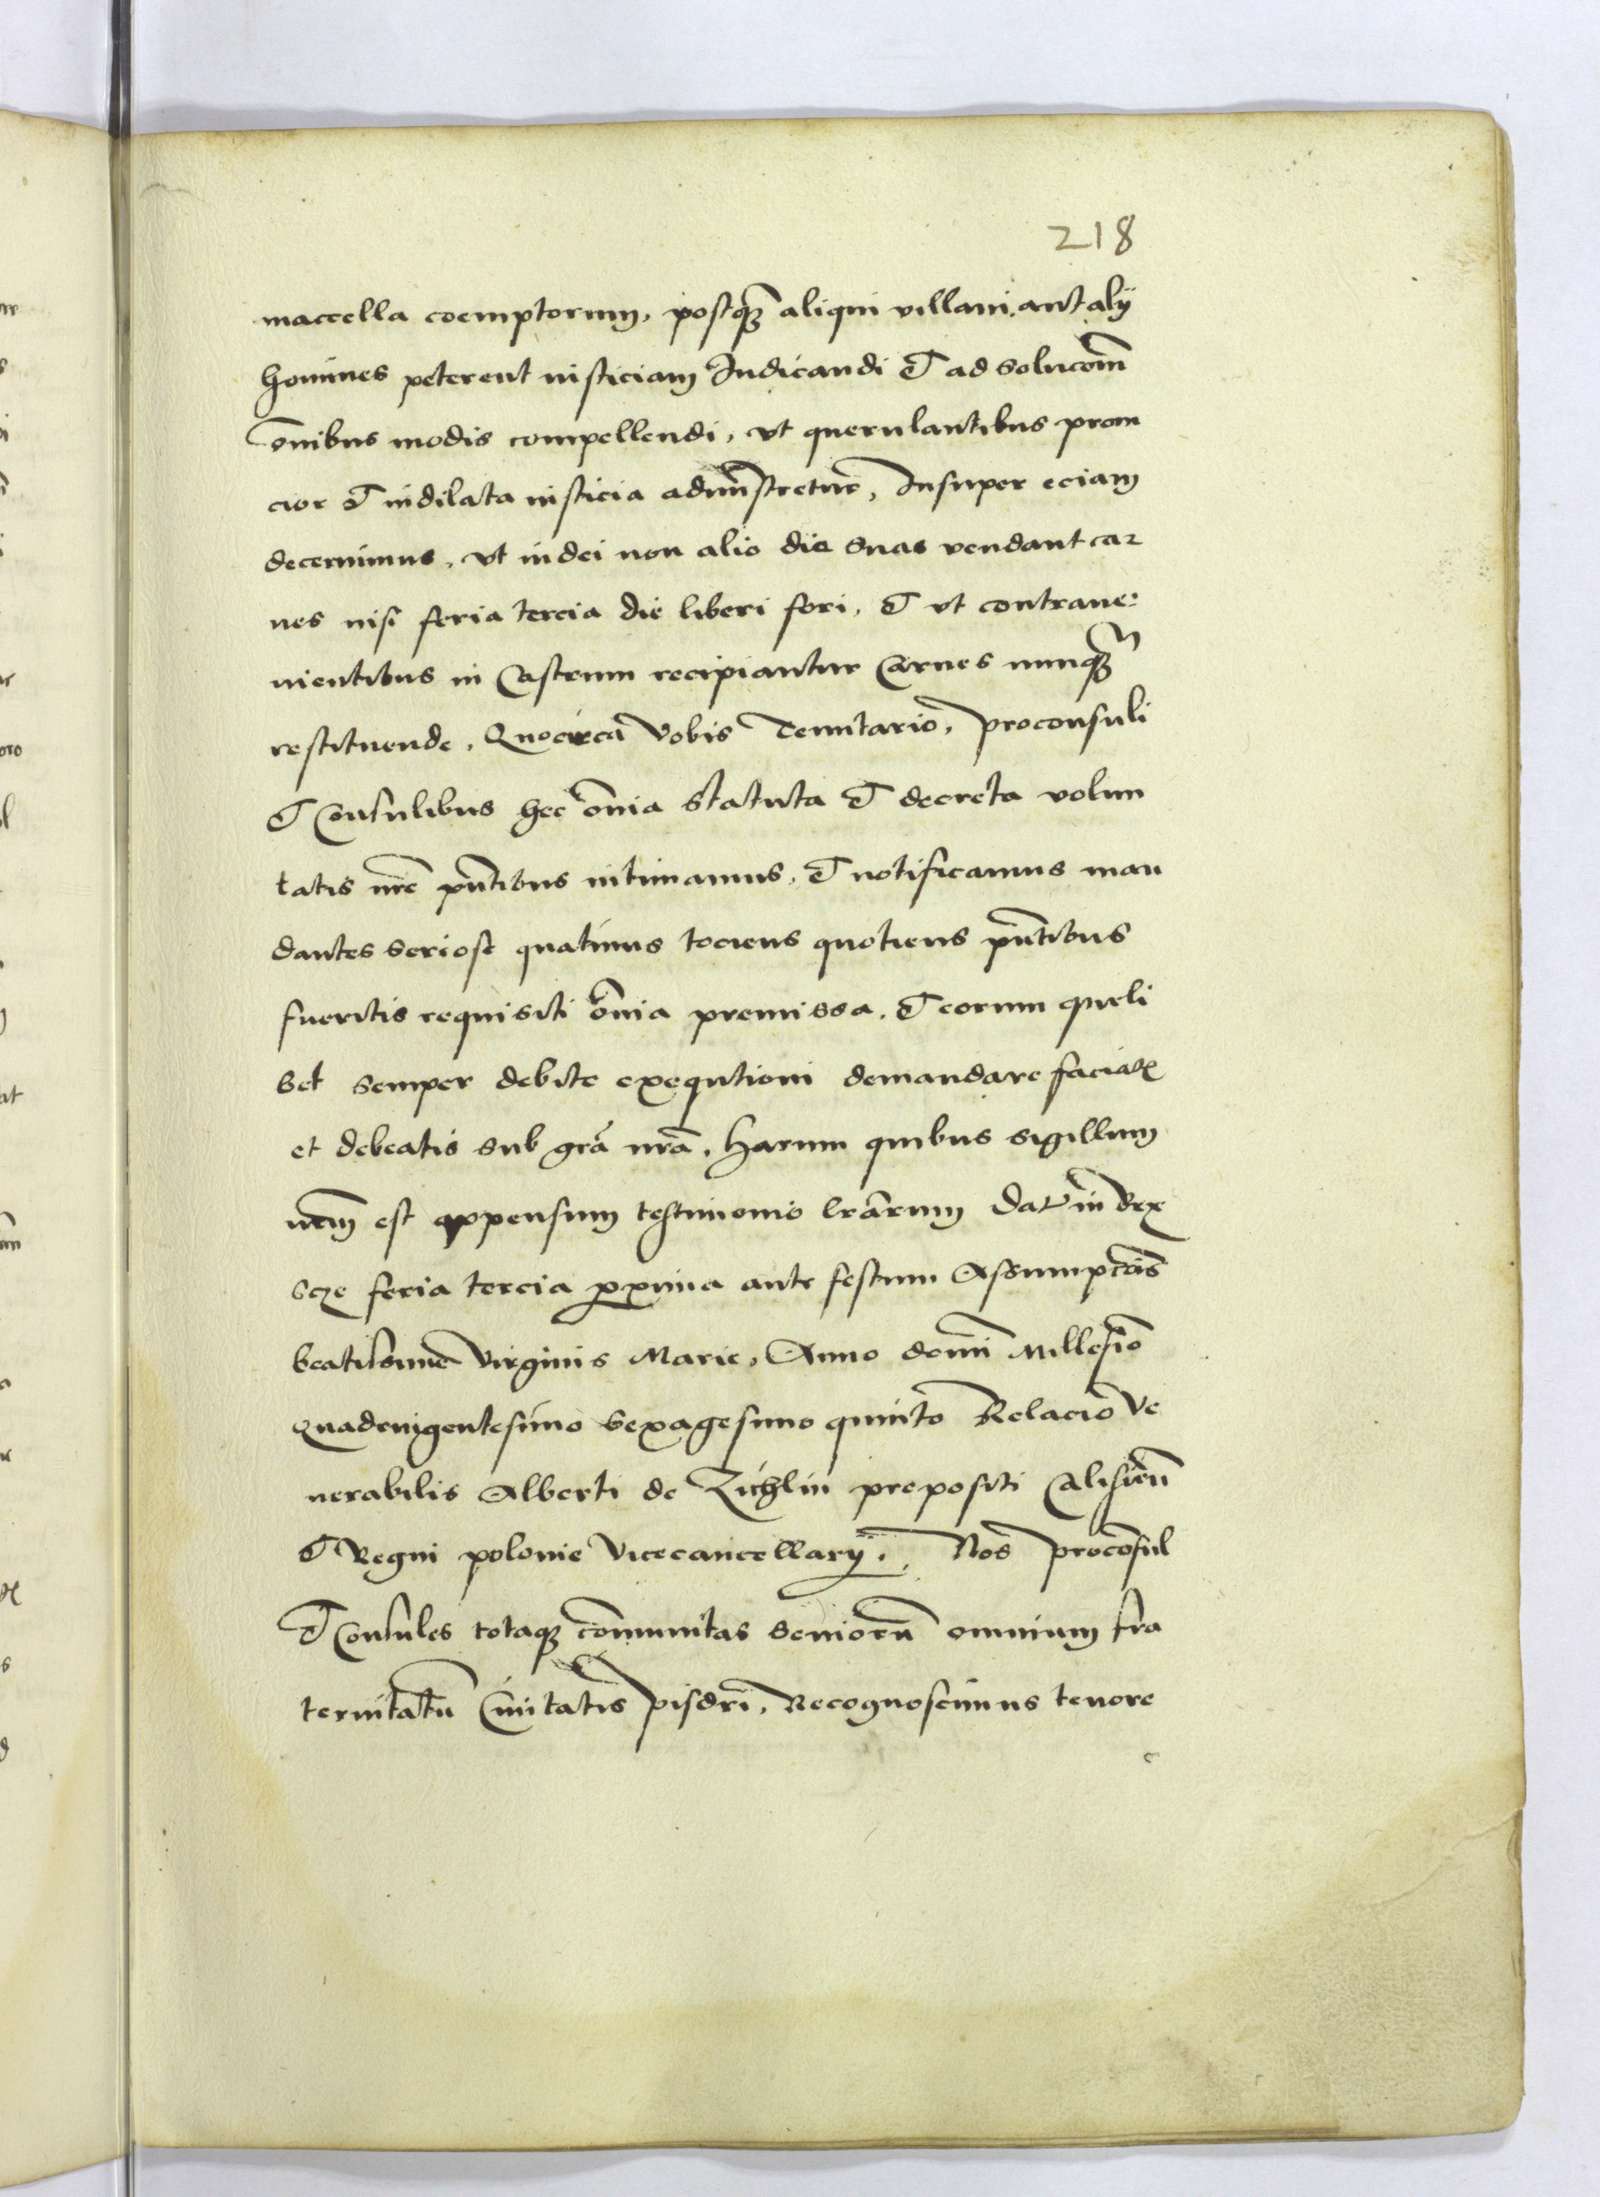 218
maccella coemptorum, postq̃ aliqui villani aut alij
homines peterent iusticiam Iudicandi et ad soluc̃om̃
om̃ibus modis compellendi, vt querulantibus prom
cior et indilata iusticia admĩstretur, Insuper eciam
decernimus, vt iudei non alio die suas vendant car
nes nisi feria tercia die liberi fori, et vt contraue:
nientibus in Castrum recipiantur Carnes nunq̃
restituende, Quocirca vobis Tenutario, proconsuli
et Consulibus hec om̃ia statuta et decreta volun
tatis nr̃e pñtibus intimamus, et notificamus man
dantes seriose quatinus tociens quotiens pñtibus
fueritis requisiti om̃ia premissa, et eorum queli
bet semper debite exequtioni demandare faciatis
et debeatis sub gr̃a nr̃a, Harum quibus sigillum
nr̃m est appensum testimonio lr̃arum Dat in Brz
scze feria tercia proxima ante festum Assumpc̃ois
beatissime virginis Marie, Anno domĩ Millesimo
Quadringentesimo sexagesimo quinto Relacio Ve
nerabilis Alberti de Zichlin prepositi Calisieñ
et Regni polonie Vicecancellarij. Nos procõsul
et Consules totaq̃ com̃unitas seniorũ omnium fra
ternitatũ Ciuitatis pisdrĩ, Recognoscimus tenore